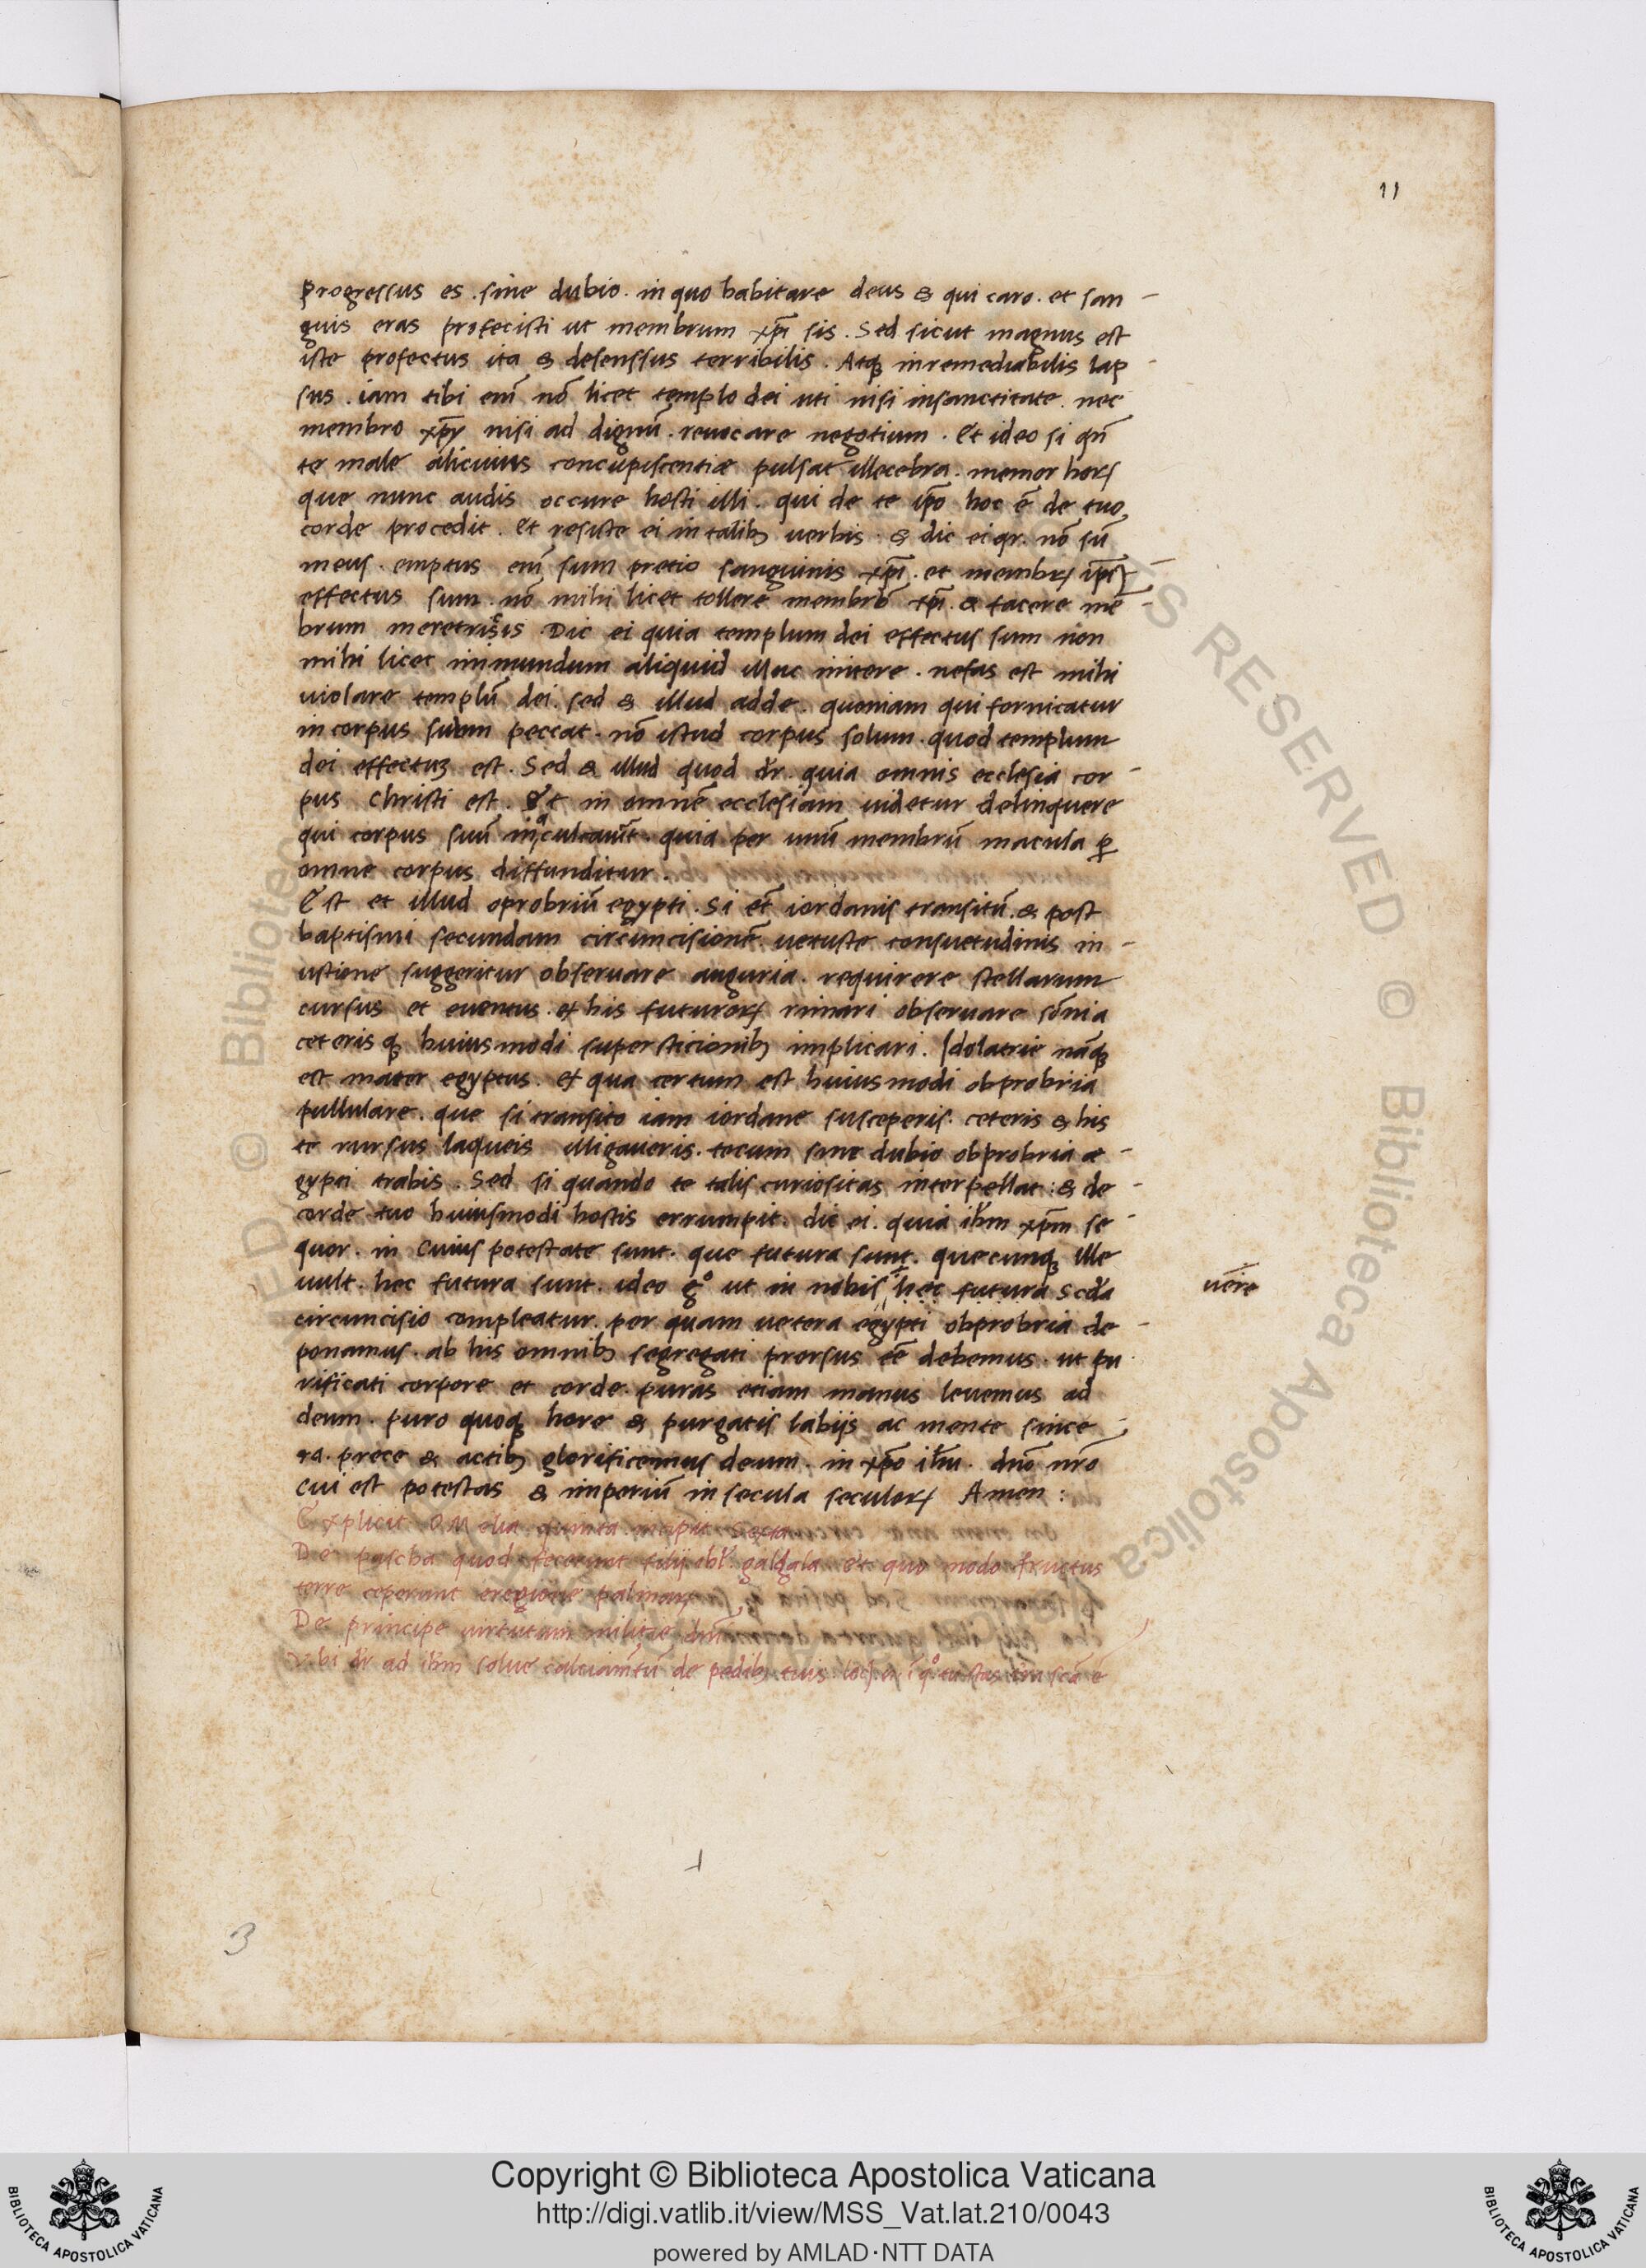 11
progressus es . sine dubio . in quo habitare deus & qui caro . et san-
guis eras profecisti ut membrum xp̄i sis . Sed sicut magnus est
iste profectus ita & desenssus terribilis . Atq; inremediabilis lap-
sus . iam tibi em̄ nō licet templo dei uti nisi insanctitate . nec
membro xp̄i nisi ad dignū . revocare negotium . Et ideo si qn̄
te male alicuius concupiscentiæ pulsat illecebra . memor hoꝝ
que nunc audis occure hosti illi . qui de te ip̄o hoc ē de tuo
corde procedit . Et resiste ei in talibȝ verbis . & dic ei qr. nō sū
meus . emptus em̄ sum pretio sanguinis xp̄i . et membꝝ ip̄iꝰ
effectus sum . nō mihi licet tollere membrū xp̄i . & facere mē-
brum meretriscis . Dic ei quia templum dei effectus sum non
mihi licet inmundum aliquid illuc mitere . nefas est mihi
violare templū dei . sed & illud adde . quoniam qui fornicatur
in corpus suum peccat . nō istud corpus solum . quod templum
dei effectuȝ est . Sed & illud quod dr̄ . quia omnis ecclesia cor-
pus Christi est . Et in omnē ecclesiam videtur delinquere
qui corpus suū maculavit . quia per unū membrū macula ꝑ
omne corpus diffunditur .
Est et illud oprobriū egypti . Si et̄ iordanis transitū . & post
baptismi secundam circumcisionē . vetuste consuetudinis in-
ustione suggeritur observare auguria . requirere stellarum
cursus et eventus . ex his futuroꝝ rimari observare sōnia
ceterisq; huiusmodi supersticionibȝ implicari . Idolatrie nāq;
est mater egyptus . ex qua certum est huiusmodi obprobria
pullulare . que si transito iam iordane susceperis . ceteris & his
te rursus laqueis illigaveris . tecum sine dubio obprobria æ-
gypti trahis . Sed si quando te talis curiositas interpellat : & de-
corde tuo huiusmodi hostis errumpit . dic ei . quia ihm̄ xp̄m se-
quor . in Cuius potestate sunt . que futura sunt . quecunq; ille
vult . hec futura sunt . ideo g° ut in nobis hec futura scd̄a
vēre
circuncisio compleatur . per quam vetera egypti obprobria de-
ponamus . ab his omnibȝ segregati prorsus eē debemus . ut pu
rificati corpore et corde . puras etiam manus levemus ad
deum . puro quoq; hore & purgatis labijs ac mente since-
ra . prece & actibȝ glorificemus deum . in xp̄o ihū . dnō nrō
cui est potestas & imperiū in secula seculoꝝ Amen :
Explicit OMelia quinta incipit Sexta
De pascha quod fecerunt filij isrl̄ . galgala et quo modo fructus
terre ceperunt eregione palmaꝝ
De principe virtutum militie dnī
Vbi dr̄ ad ihm̄ solve calciamtū de pedibȝ tuis . loc; .n. ī q° tu stas scā ē
3